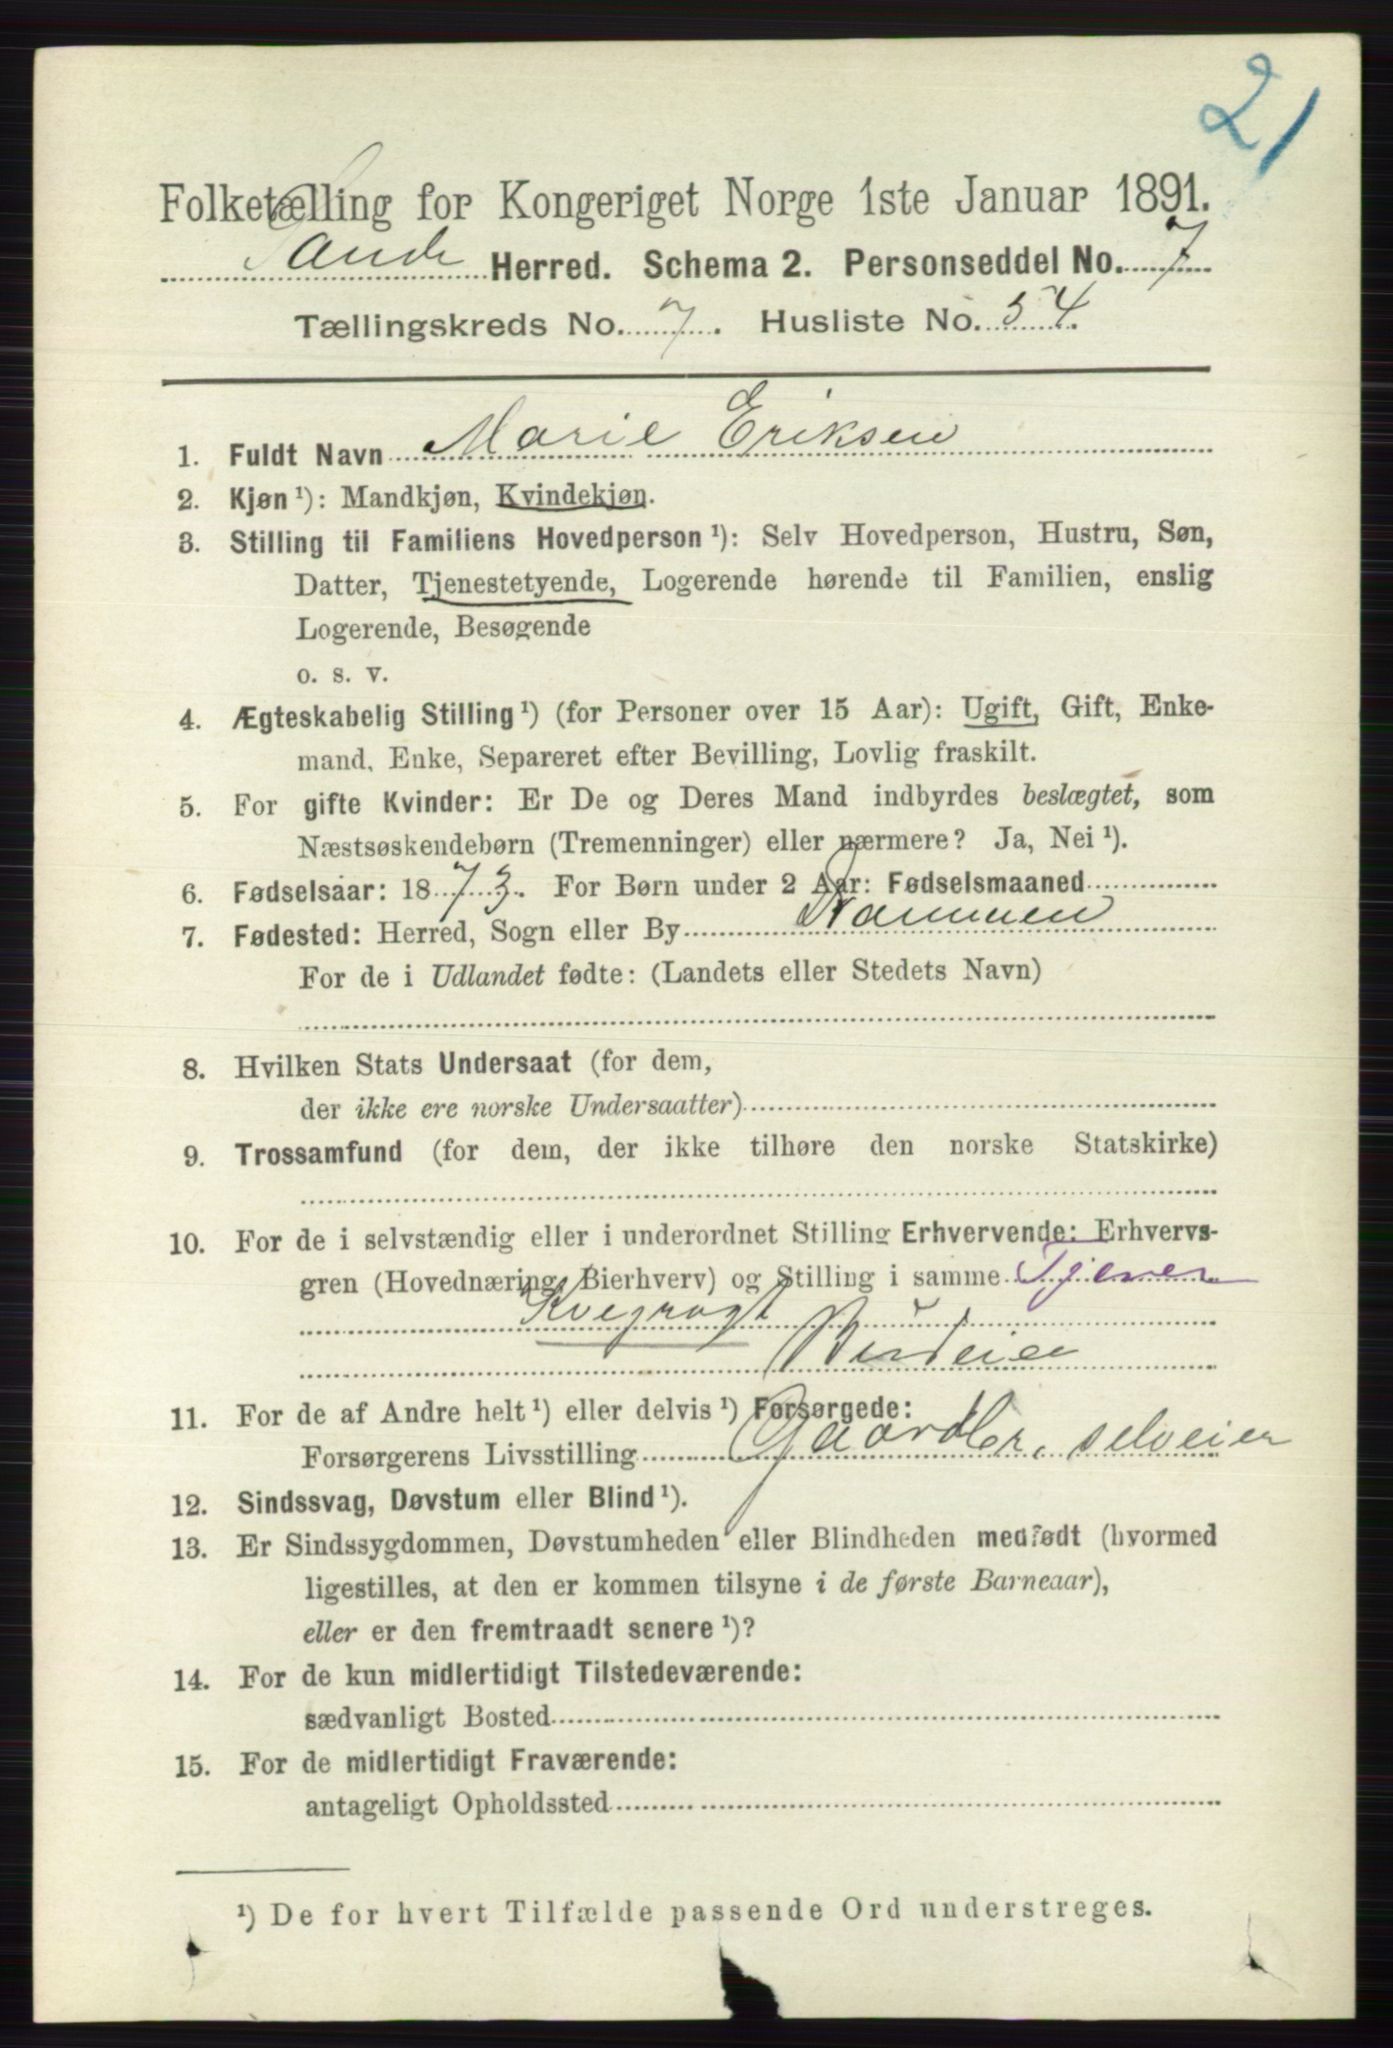 21
Folketælling for Kongeriget Norge 1ste Januar 1891.
Sande Herred. Schema 2. Personseddel No. 7
Tællingskreds No. 7. Husliste No. 54.
1. Fuldt Navn Marie Eriksen
2. Kjøn ¹): Mandkjøn, Kvindekjøn.
3. Stilling til Familiens Hovedperson ¹): Selv Hovedperson, Hustru, Søn,
Datter, Tjenestetyende, Logerende hørende til Familien, enslig
Logerende, Besøgende
o. s. v.
4. Ægteskabelig Stilling ¹) (for Personer over 15 Aar): Ugift, Gift, Enke-
mand, Enke, Separeret efter Bevilling, Lovlig fraskilt.
5. For gifte Kvinder: Er De og Deres Mand indbyrdes beslægtet, som
Næstsøskendebørn (Tremenninger) eller nærmere? Ja, Nei ¹).
6. Fødselsaar: 1873. For Børn under 2 Aar: Fødselsmaaned
7. Fødested: Herred, Sogn eller By
For de i Udlandet fødte: (Landets eller Stedets Navn)
8. Hvilken Stats Undersaat (for dem,
der ikke ere norske Undersaatter)
9. Trossamfund (for dem, der ikke tilhøre den norske Statskirke)
10. For de i selvstændig eller i underordnet Stilling Erhvervende: Erhvervs-
gren (Hovednæring, Bierhverv) og Stilling i samme Tjener
Kvegrøgt
Budeie
11. For de af Andre helt ¹) eller delvis ¹) Forsørgede:
Forsørgerens Livsstilling Gaardbr. selveier
12. Sindssvag, Døvstum eller Blind ¹).
13. Er Sindssygdommen, Døvstumheden eller Blindheden medfødt (hvormed
ligestilles, at den er kommen tilsyne i de første Barneaar),
eller er den fremtraadt senere ¹)?
14. For de kun midlertidigt Tilstedeværende:
sædvanligt Bosted
15. For de midlertidigt Fraværende:
antageligt Opholdssted
¹) De for hvert Tilfælde passende Ord understreges.